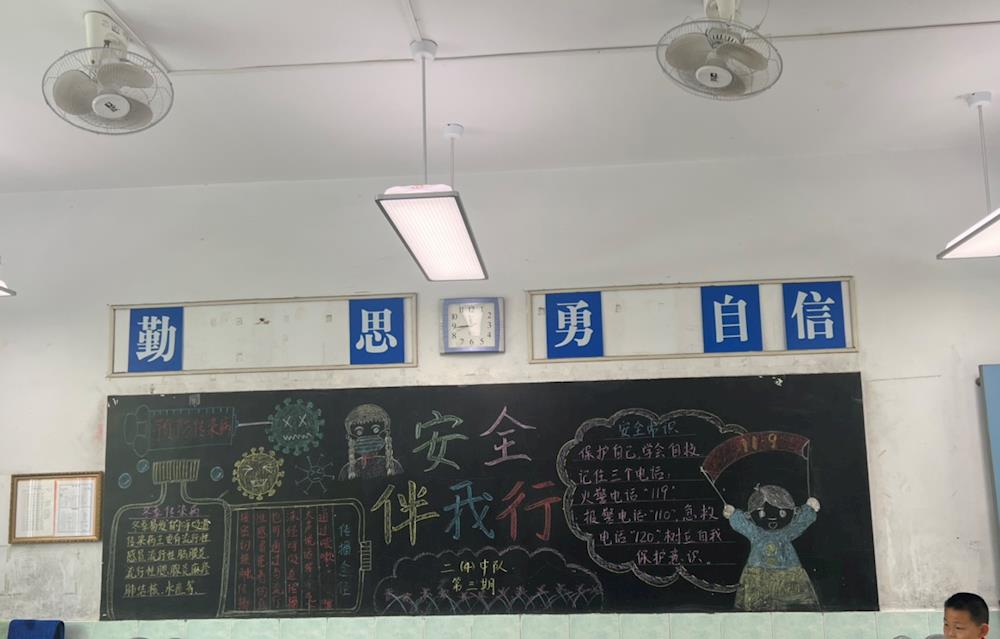 勤 思 勇 自 信
预防传染病
安全
伴我行
二(4)中队
第三期
冬季传染病
冬季易发的呼吸道
传染病主要有流行性
感冒.流行性脑膜炎
流行性腮腺炎麻疹
肺结核.水痘等。
传播途径
安全常识
保护自己,学会自救
记住三个电话:
火警电话"119"
报警电话"110",急救
电话"120",树立自我
保护意识。
119